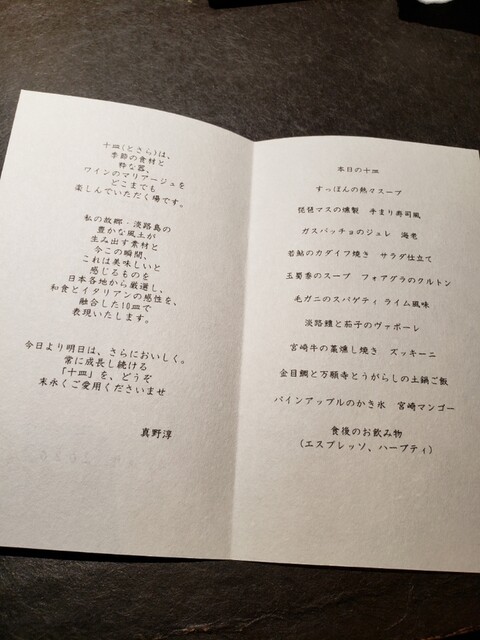 十皿(とさら)は、
季節の食材と
粋な器、
ワインのマリアージュを
どこまでも
楽しんでいただく場です。
私の故郷・淡路島の
豊かな風土が
生み出す素材と
今この瞬間、
これは美味しいと
感じるものを
日本各地から厳選し、
和食とイタリアンの感性を、
融合した10皿で
表現いたします。
今日より明日は、さらにおいしく。
常に成長し続ける
「十皿」を、どうぞ
末永くご愛用くださいませ
真野淳
本日の十皿
すっぽんの熱々スープ
琵琶マスの燻製 手まり寿司風
ガスパッチョのジュレ 海老
若鮎のカダイフ焼き サラダ仕立て
玉蜀黍のスープ フォアグラのクルトン
毛ガニのスパゲティ ライム風味
淡路鱧と茄子のヴァポーレ
宮崎牛の藁燻し焼き ズッキーニ
金目鯛と万願寺とうがらしの土鍋ご飯
パインアップルのかき氷 宮崎マンゴー
食後のお飲み物
(エスプレッソ、ハーブティ)